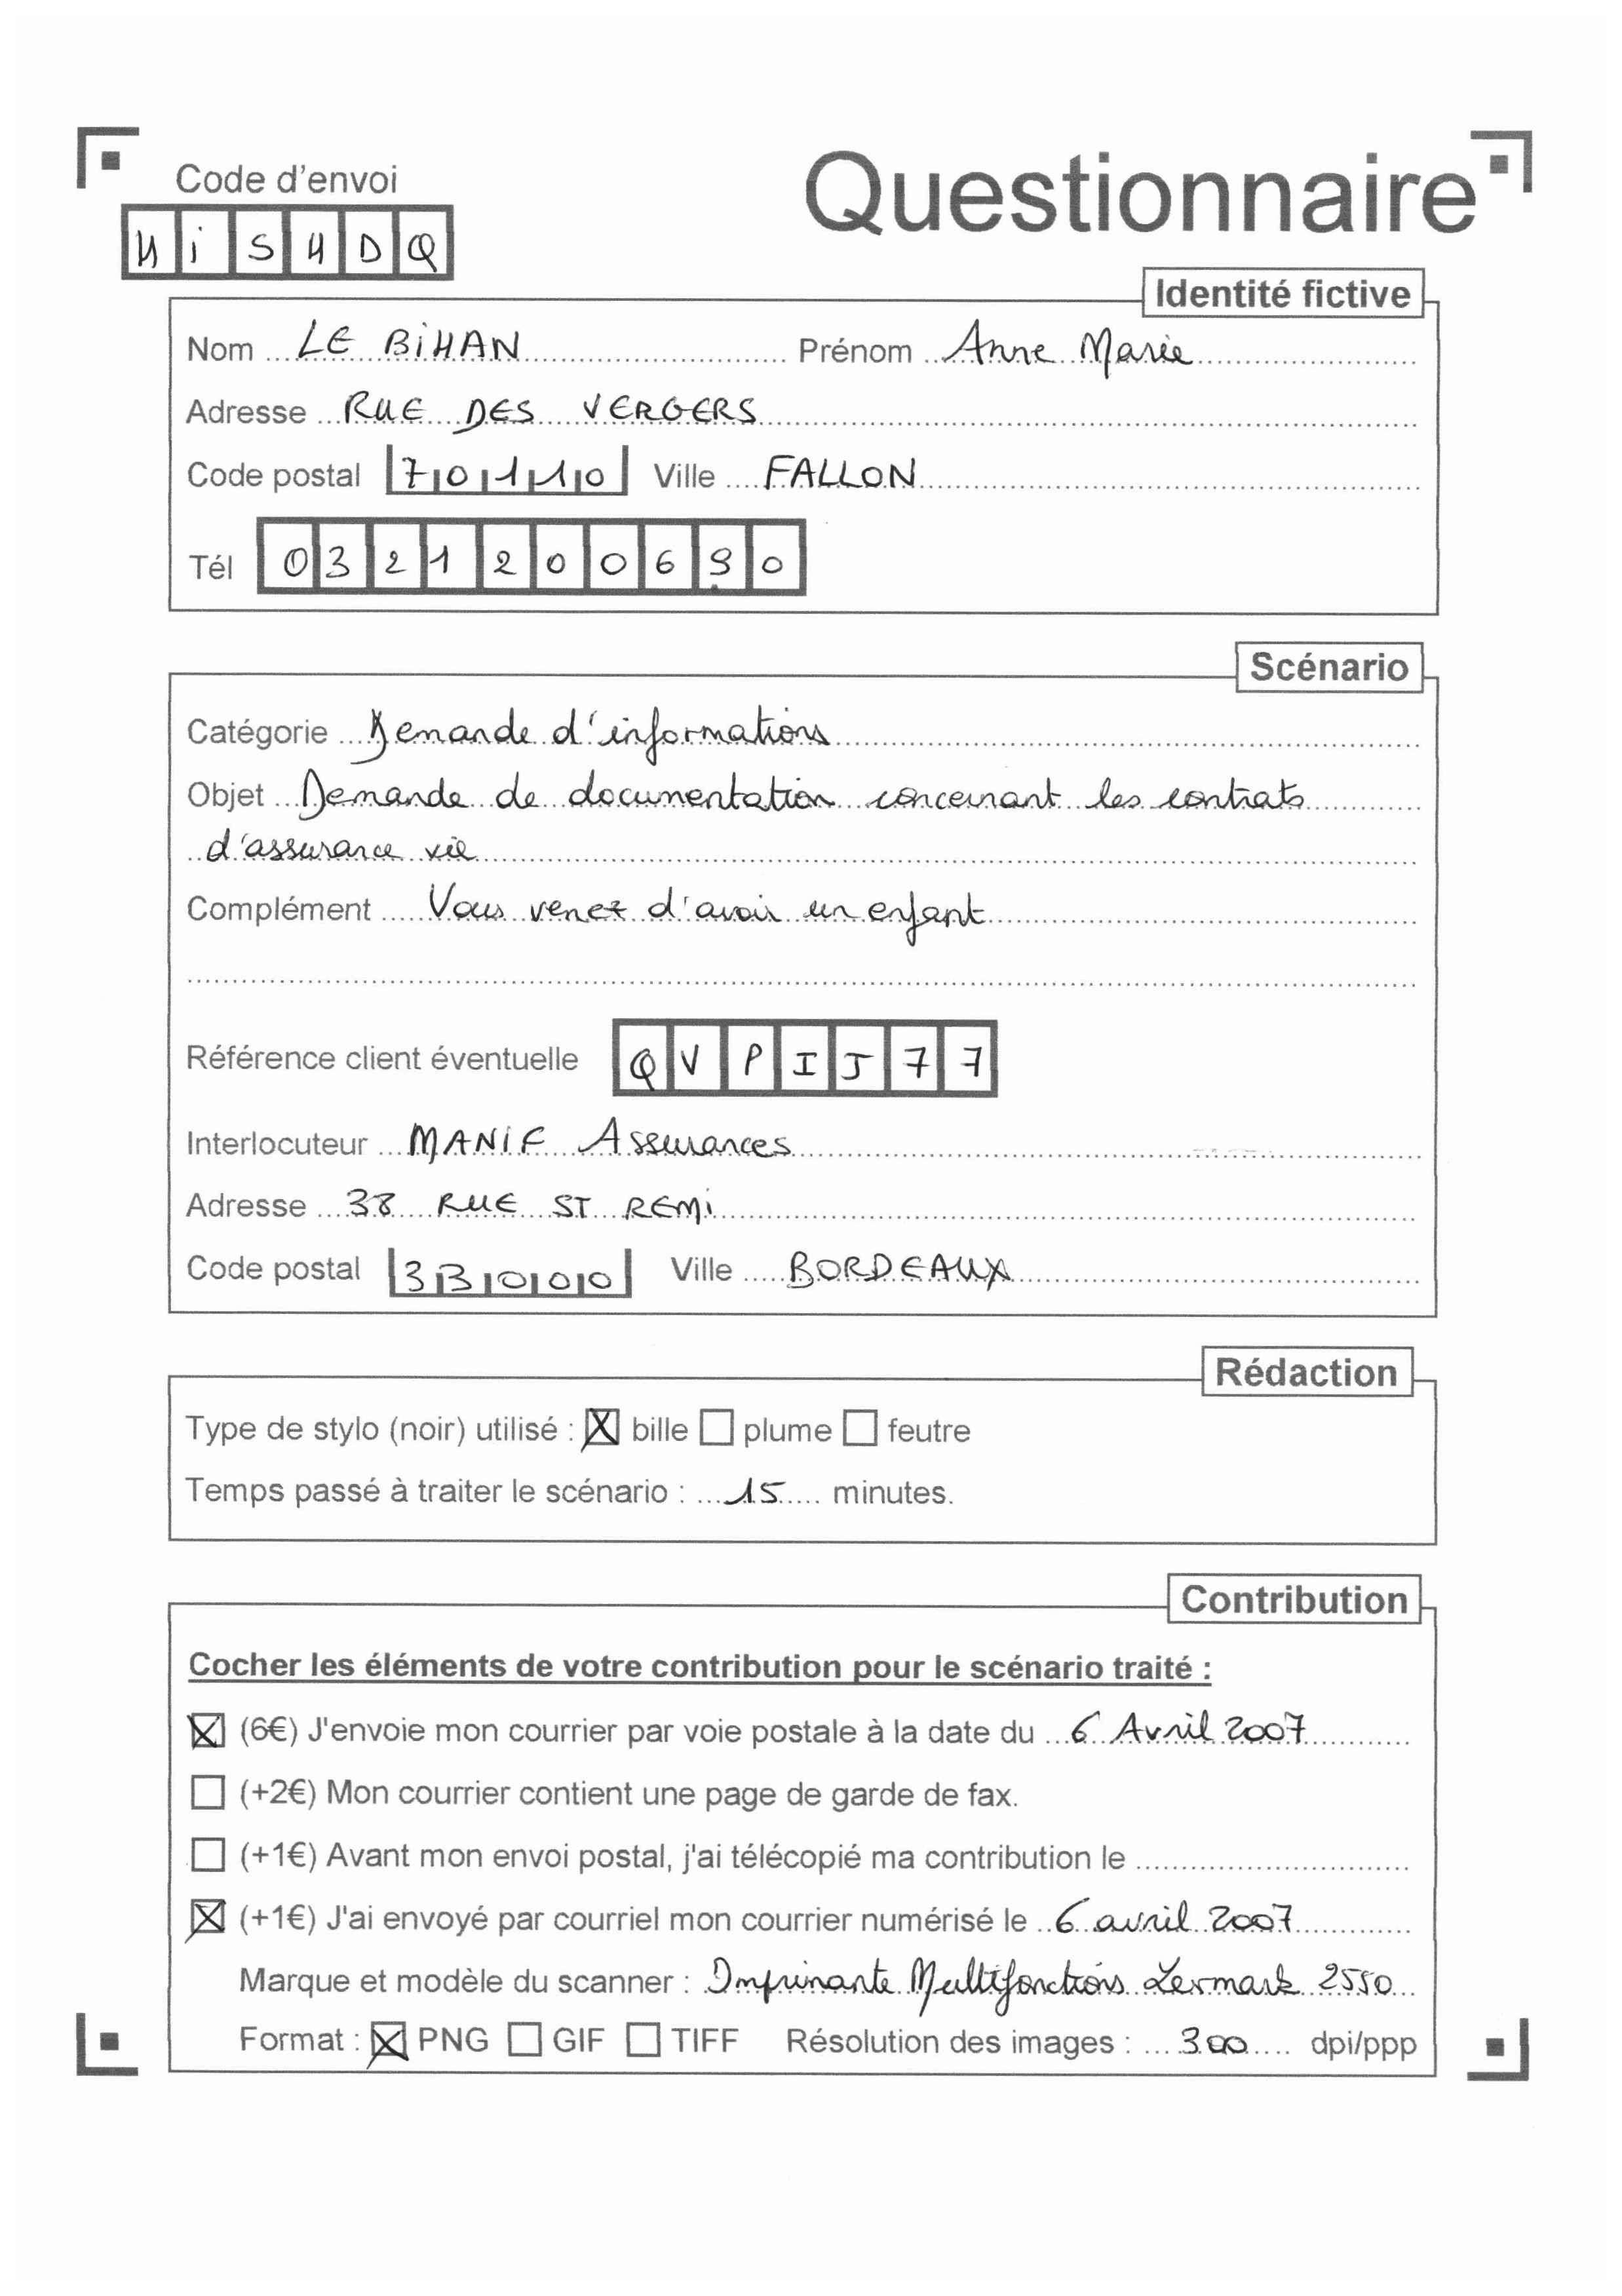 Code d'envoi
Questionnaire
H i S H D Q
Identité fictive
Nom LE BiHAN Prénom Anne Marie
Adresse RUE DES VERGERS
Code postal 70110 Ville FALLON
Tél 0321200690
Scénario
Catégorie Demande d'informations
Objet Demande de documentation concernant les contrats
d'assurance vie
Complément Vous venez d'avoir un enfant
Référence client éventuelle QVPIJ77
Interlocuteur MANIF Assurances
Adresse 38 RUE ST REMi
Code postal 33000 Ville BORDEAUX
Rédaction
Type de stylo (noir) utilisé : ☒ bille ☐ plume ☐ feutre
Temps passé à traiter le scénario : 15 minutes.
Contribution
Cocher les éléments de votre contribution pour le scénario traité :
☒ (6€) J'envoie mon courrier par voie postale à la date du 6 Avril 2007
☐ (+2€) Mon courrier contient une page de garde de fax.
☐ (+1€) Avant mon envoi postal, j'ai télécopié ma contribution le
☒ (+1€) J'ai envoyé par courriel mon courrier numérisé le 6 avril 2007
Marque et modèle du scanner : Imprimante Multifonctions Lexmark 2550
Format : ☒ PNG ☐ GIF ☐ TIFF Résolution des images : 300 dpi/ppp